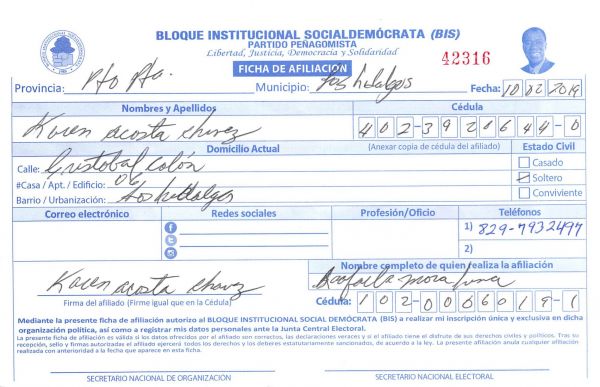 BLOQUE INSTITUCIONAL SOCIALDEMÓCRATA (BIS)
PARTIDO PEÑAGOMISTA
Libertad, Justicia, Democracia y Solidaridad
42316
FICHA DE AFILIACIÓN
Provincia: Pto Pta. Municipio: Los hidalgos Fecha: 10/02/2019
Nombres y Apellidos Cédula
Karen acosta chavez 402-3920644-0
Domicilio Actual (Anexar copia de cédula del afiliado) Estado Civil
Calle: Cristobal Colón Casado
#Casa / Apt. / Edificio: 06 Soltero
Barrio / Urbanización: Los hidalgos Conviviente
Correo electrónico Redes sociales Profesión/Oficio Teléfonos
1) 829-7932497
2)
Nombre completo de quien realiza la afiliación
Karen acosta chavez Rafaela mora
Firma del afiliado (Firme igual que en la Cédula) Cédula: 102-0006019-1
Mediante la presente ficha de afiliación autorizo al BLOQUE INSTITUCIONAL SOCIAL DEMÓCRATA (BIS) a realizar mi inscripción única y exclusiva en dicha
organización política, así como a registrar mis datos personales ante la Junta Central Electoral.
La presente ficha de afiliación es válida si los datos ofrecidos por el afiliado son correctos, las declaraciones veraces y si el afiliado tiene el disfrute de sus derechos civiles y políticos. Tras su
recepción, sello y firmas autorizadas el afiliado ejercerá todos los derechos y los deberes estatutariamente sancionados, de acuerdo a la ley. La presente afiliación anula cualquier afiliación
realizada con anterioridad a la fecha que aparece en esta ficha.
SECRETARIO NACIONAL DE ORGANIZACIÓN SECRETARIO NACIONAL ELECTORAL